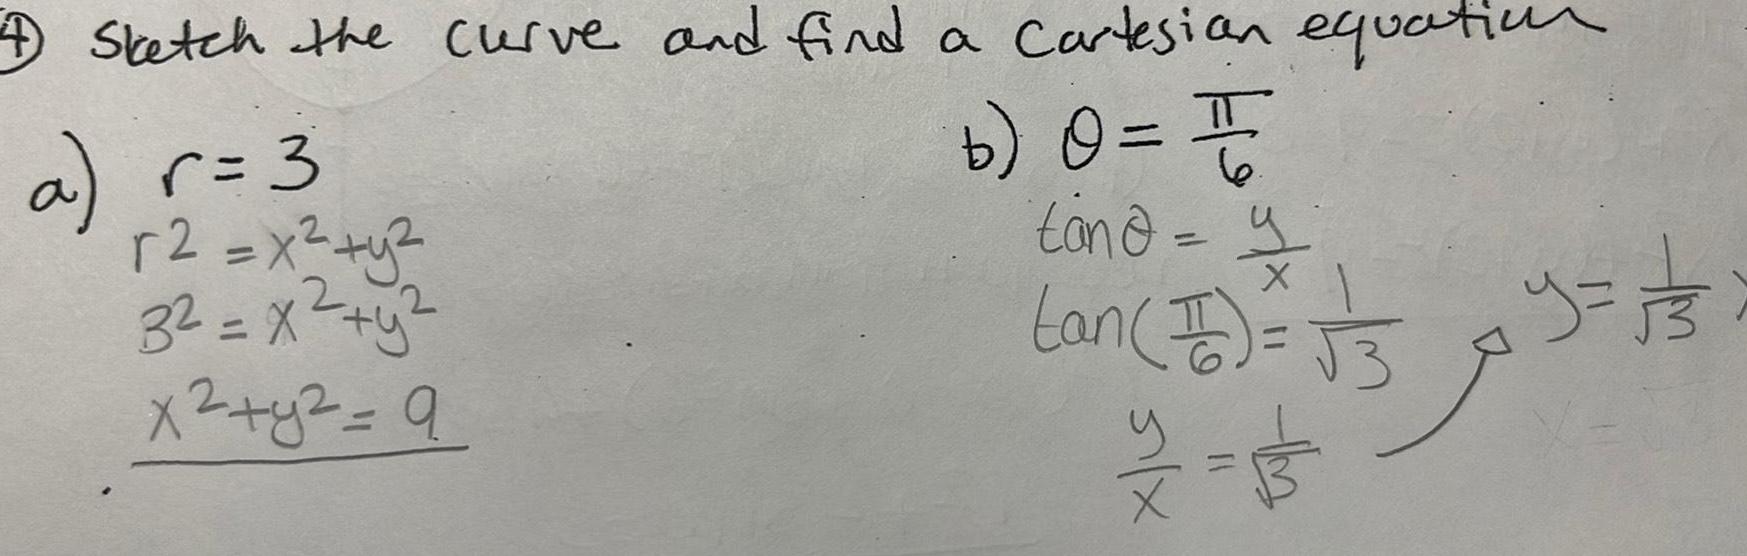 ④ Sketch the curve and find a Cartesian equation
a) r = 3
r2 = x² + y²
3² = x² + y²
x² + y² = 9
b) θ = π/6
tanθ = y/x
tan(π/6) = 1/√3
y/x = 1/√3
y = 1/√3 x